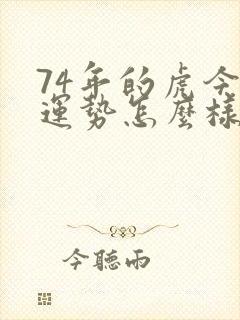 74年的虎今
運勢怎麼樣
今聽雨